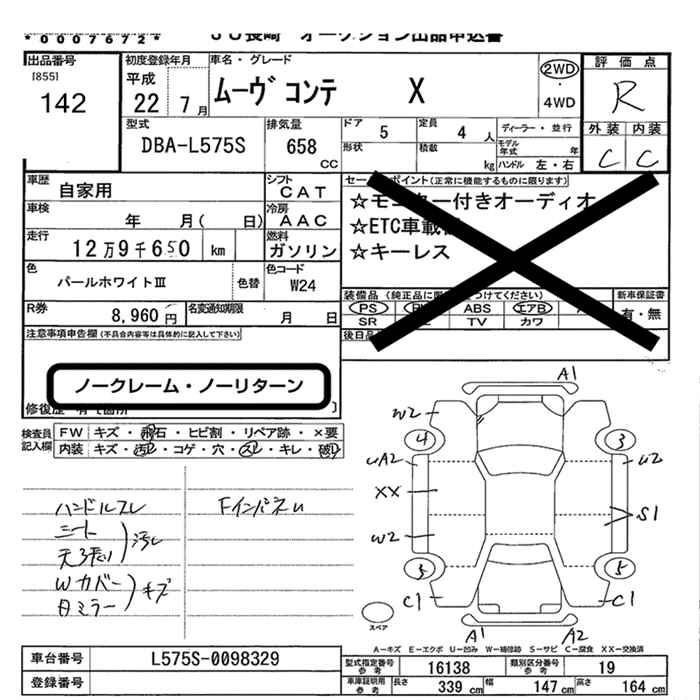 *0007672*
JU長崎 オークション出品申込書
出品番号
[855]
142
初度登録年月
平成
22 7月
車名・グレード
ムーヴ コンテ X
2WD
・
4WD
評価点
R
外装 内装
C C
型式
DBA-L575S
排気量
658
CC
ドア 5
定員 4人
形状
積載 kg
ディーラー・並行
モデル年式 年
ハンドル 左・右
車歴
自家用
シフト
CAT
車検
年 月( 日)
冷房
AAC
走行
12万9千650 km
燃料
ガソリン
色
パールホワイトⅢ
色替
色コード
W24
R券
8,960円
名変通知期限
月 日
セールスポイント(正常に機能するものに限ります)
☆モニター付きオーディオ
☆ETC車載
☆キーレス
装備品 (純正品に つけてください)
PS ABS エアB
SR TV カワ
新車保証書
有・無
後日
注意事項申告欄(不具合内容等は具体的に記入して下さい)
ノークレーム・ノーリターン
修復歴 有
検査員
記入欄
FW キズ・飛石・ヒビ割・リペア跡・×要
内装 キズ・汚レ・コゲ・穴・スレ・キレ・破レ
ハンドルスレ
シート
天張り
汚レ
Wカバー
Bミラー
キズ
FインパネU
A1
W2
4
3
UA2
U2
XX
S1
W2
5
5
C1
C1
スペア
A1
A2
A-キズ E-エクボ U-凹み W-補修跡 S-サビ C-腐食 XX-交換済
車台番号
L575S-0098329
登録番号
型式指定番号
参考
16138
類別区分番号
参考
19
車庫証明用
参考
長さ
339 cm
幅
147 cm
高さ
164 cm